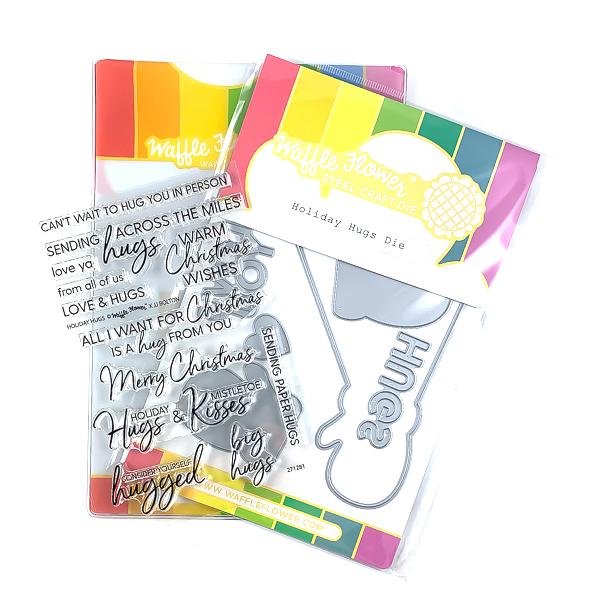 Waffle Fl
WAF
Waffle Flower®
STEEL CRAFT DIE
Holiday Hugs Die
CAN'T WAIT TO HUG YOU IN PERSON
SENDING hugs ACROSS THE MILES
love ya
from all of us
LOVE & HUGS
WARM
Christmas
WISHES
HOLIDAY HUGS © Waffle Flower® X JJ BOLTON
ALL I WANT FOR Christmas
IS A hug FROM YOU
Merry Christmas
SENDING PAPER HUGS
HOLIDAY
Hugs &
MISTLETOE
Kisses
big
hugs
CONSIDER YOURSELF
hugged
271281
HUGS
WWW.WAFFLEFLOWER.COM